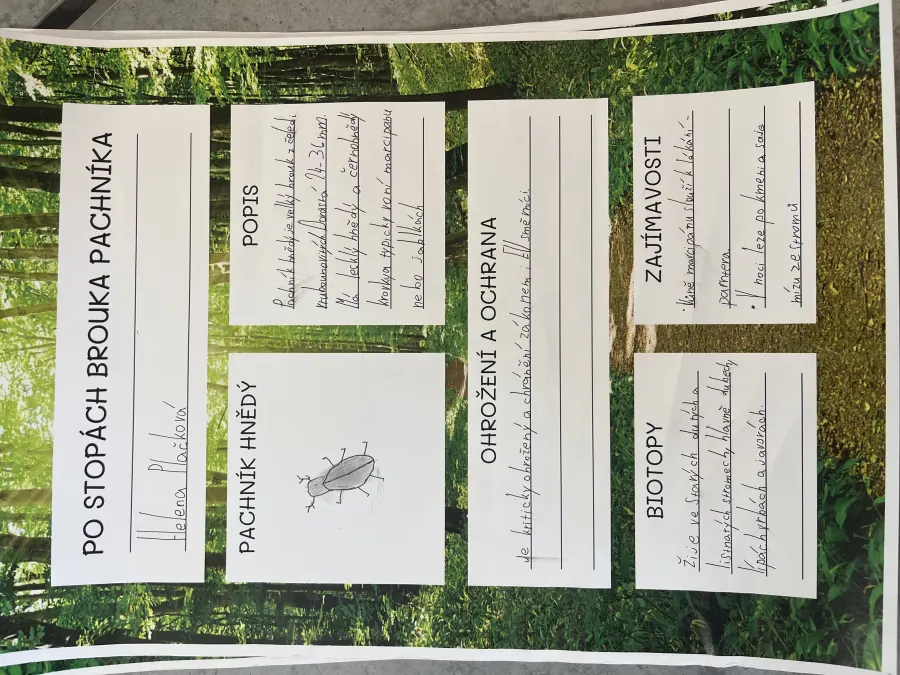 PO STOPÁCH BROUKA PACHNÍKA
Helena Plačková
PACHNÍK HNĚDÝ
POPIS
Pachník hnědý je velký brouk z čeledi
vrubounovitých. Dorůstá 24-36 mm.
Má lesklý hnědý a černohnědý
krovky a typicky voní marcipánu
nebo jablkách
OHROŽENÍ A OCHRANA
Je kriticky ohrožený a chráněný zákonem i EU směrnicí.
BIOTOPY
Žije ve starých dutých a
listnatých stromech, hlavně dubech,
lipách vrbách a javorách.
ZAJÍMAVOSTI
• Vůně marcipánu slouží k lákání
partnera.
• V noci leze po kmeni a saje
mízu ze stromů